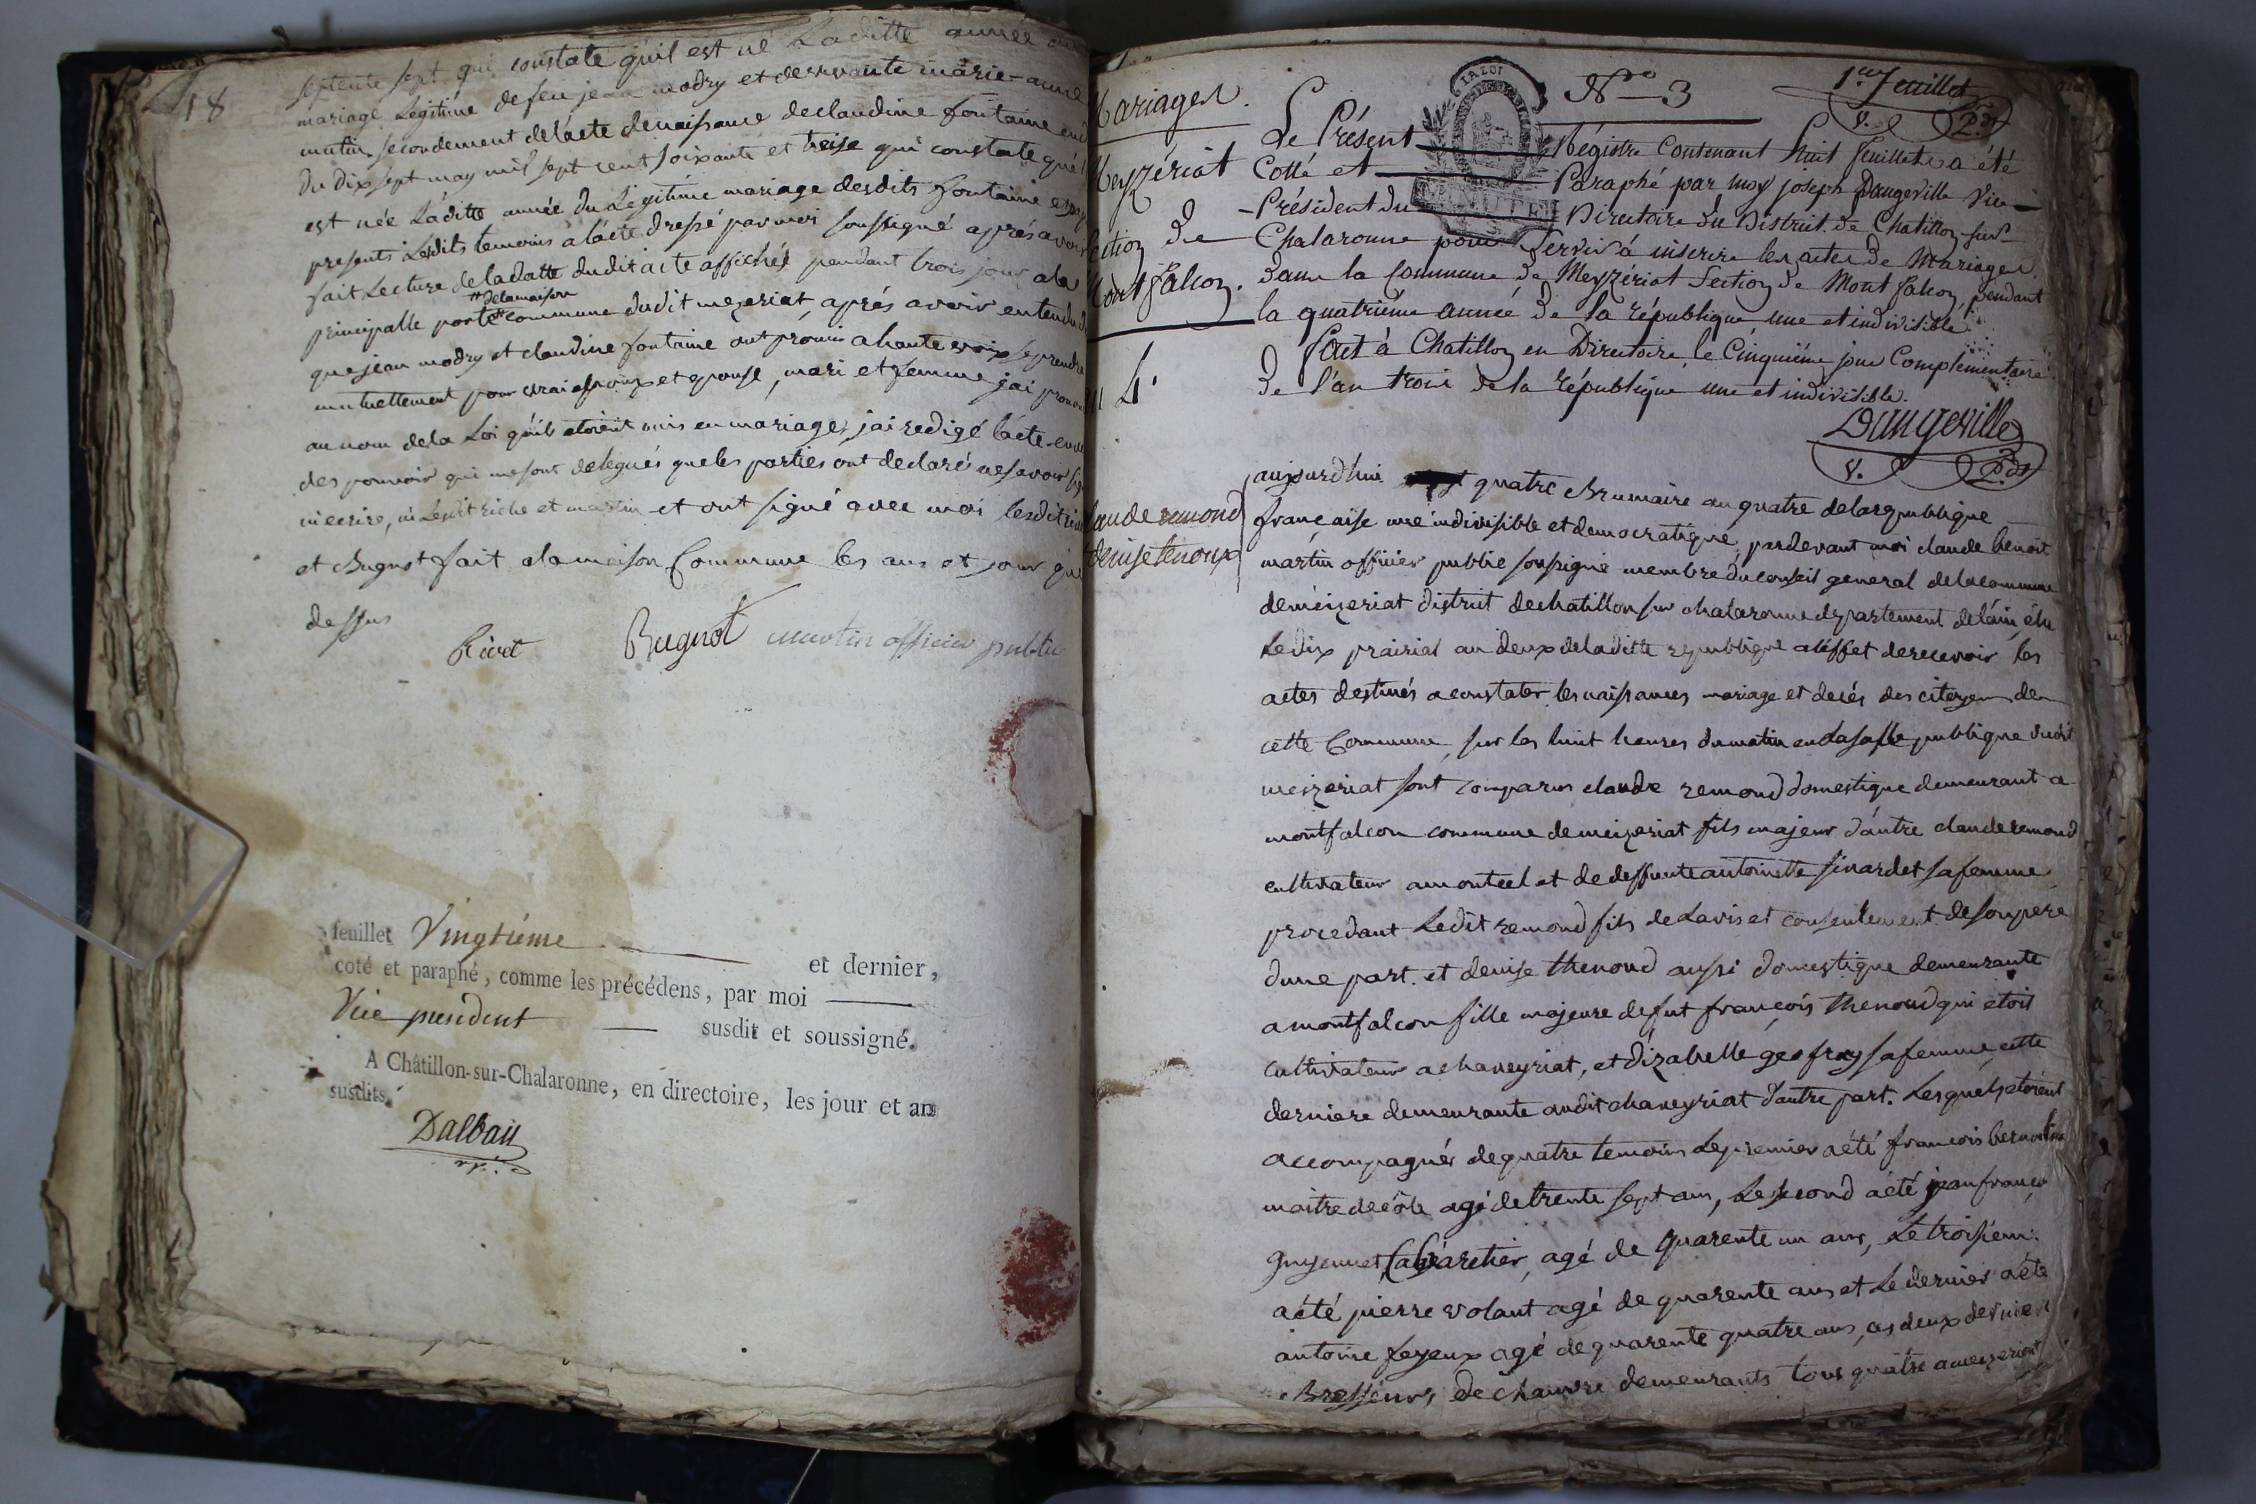 18
septente sept qui constate quil est né Laditte année du
mariage Legitime de feu jean modry et de vivante marie-anne
matin secondement de lácte de naissance de claudine fontaine en d
du dix sept may mil sept cent soixante et treise qui constate quel
est née Láditte année du Légitime mariage desdits fontaine et
presents Lesdits temoins a lácte dressé par moi soussigné aprés avoir
fait Lecture de la datte dudit acte affiché pendant trois jour a la
# de la maison
principalle porte # commune dudit mezeriat, aprés avoir entendu
que jean modry et claudine fontaine ont promis a haute voix se prendre
mutuellement pour vrai epoux et epouse, mari et femme jai prononcé
au nom de la Loi quils etoient unis en mariage, jai redigé lácte en
des pouvoir qui me sont delegués que les parties ont declaré ne savoir
ni ecrire, ni Lesdit riche et martin et ont signé avec moi lesdit
et Bugnot fait a la maison Commune les ans et jour que
dessus
Rivet Bugnot martin officier public
feuillet Vingtième et dernier,
coté et paraphé, comme les précédens, par moi
Vice president susdit et soussigné.
A Châtillon-sur-Chalaronne, en directoire, les jour et an
susdits.
Dalbau
Mariages.
Meyzériat
Section de
Montfalcon.
4
LA LOI
N° 3
1er feuillet
Le Présent Régistre Contenant huit feuillets a été
Cotté et Paraphé par moy joseph Dangeville Vice
-Président du Directoire du District de Chatillon-sur-
Chalaronne pour Servir à inscrire les actes de Mariages
dans la Commune de Meyzériat Section de Montfalcon, pendant
la quatriéme année de la république une et indivisible
fait à Chatillon en Directoire, le Cinquiéme jour Complémentaire
de l'an trois de la république une et indivisible.
Dangeville
claude remond
denise tenoux
aujourd'hui quatre Brumaire an quatre de la republique
française une indivisible et democratique, pardevant moi claude benoit
martin officier public soussigné membre du conseil general de la commune
de meizeriat district de chatillon sur chalaronne departement de láin, élu
Le dix prairial an deux de laditte republique a léffet de recevoir les
actes destinés a constater les naissances mariage et decés des citoyens de
cette Commune, sur les huit heures du matin en La salle publique dudit
meizeriat sont comparus claude remond domestique demeurant a
montfalcon commune de meizeriat fils majeur dáutre claude remond
cultivateur a montcel et de deffunte antoinette sivardet sa femme,
procedant Ledit remond fils de Lavis et consentement de son pere
dune part. et denise thenoud aussi domestique demeurante
a montfalcon fille majeure de fut françois thenoud qui etoit
cultivateur a chaneyriat, et dizabelle geofray sa femme, cette
derniere demeurante audit chaneyriat d'autre part. Lesquels etoient
accompagnés de quatre temoins Le premier a été francois bernardin
maitre decôle agé de trente sept ans, Le second a été jean franço
guyennet Cabaretier, agé de quarente un ans, Le troisiem:
a été pierre volant agé de quarente ans et Le dernier a été
antoine Leyeux agé de quarente quatre ans, ces deux dernier
Bresseurs de chanvre demeurants tous quatre a meizeriat